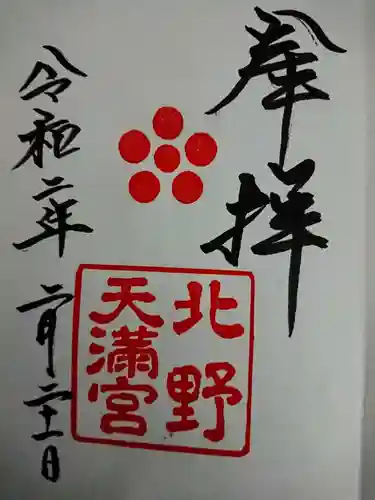 奉拝
北野
天満宮
令和二年
二月二十一日